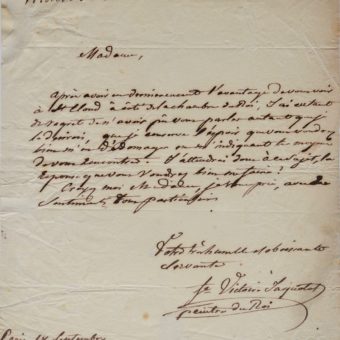 Madame,
après avoir eu dernièrement l'avantage de vous voir
à St Cloud à côté de la chambre du Roi, J'ai eu tant
de regret de n'avoir pu vous parler autant que
je désirois, que vous
bien m'en dédomager en m'indiquant le moyen
de vous rencontrer. J'attendrai donc à ce sujet, la
réponse que vous voudrez bien me faire :
Croyez moi Madame je vous prie, avec des
Sentimens tout particuliers
Votre très humble et obéissante
Servante
Victoire Jaquotot
peintre du Roi
Paris Septembre